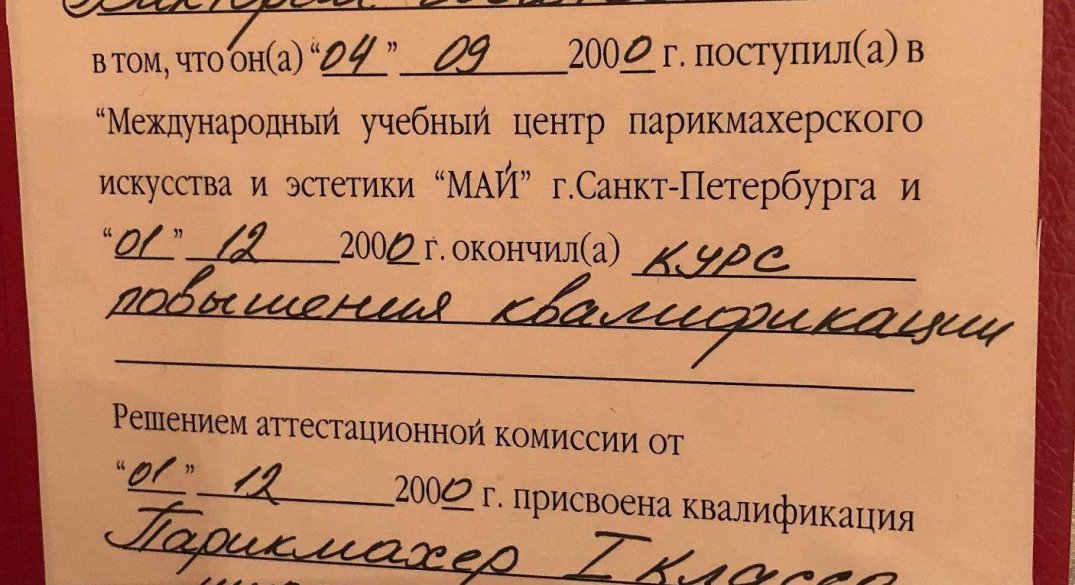 в том, что он(а) “04” 09 2000 г. поступил(а) в
“Международный учебный центр парикмахерского
искусства и эстетики “МАЙ” г.Санкт-Петербурга и
“01” 12 2000 г. окончил(а) курс
повышения квалификации
Решением аттестационной комиссии от
“01” 12 2000 г. присвоена квалификация
Парикмахер I класса